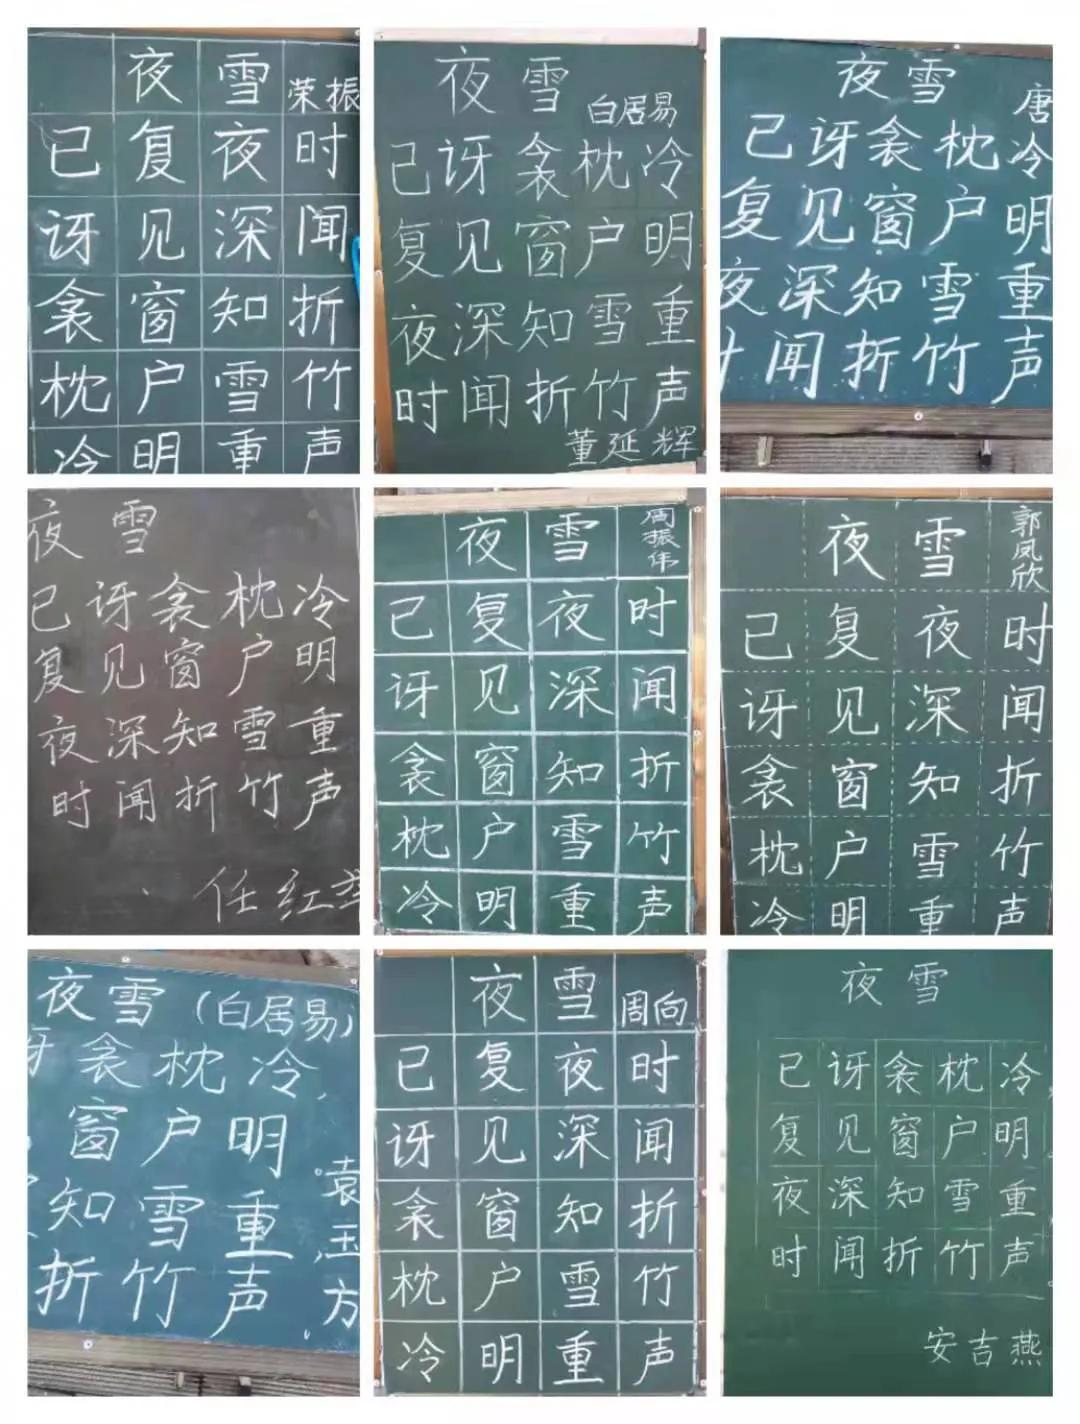 夜雪 荣振
已讶衾枕冷
复见窗户明
夜深知雪重
时闻折竹声
夜雪
白居易
已讶衾枕冷
复见窗户明
夜深知雪重
时闻折竹声
董延辉
夜雪
唐
已讶衾枕冷
复见窗户明
夜深知雪重
闻折竹声
夜雪
已讶衾枕冷
复见窗户明
夜深知雪重
时闻折竹声
任红
夜雪
周振伟
已讶衾枕冷
复见窗户明
夜深知雪重
时闻折竹声
夜雪
郭凤欣
已讶衾枕冷
复见窗户明
夜深知雪重
时闻折竹声
夜雪（白居易）
讶衾枕冷，
窗户明
知雪重
折竹声
袁玉方
夜雪 周向
已讶衾枕冷
复见窗户明
夜深知雪重
时闻折竹声
夜雪
已讶衾枕冷
复见窗户明
夜深知雪重
时闻折竹声
安吉燕